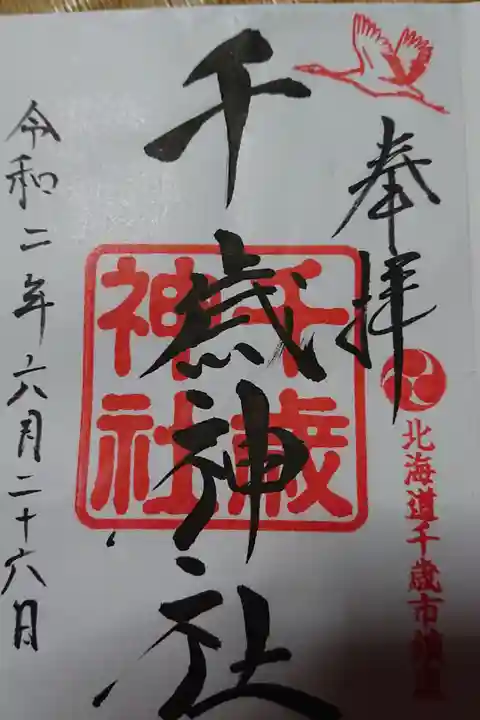 奉拝
北海道千歳市鎮座
千歳神社
千歳神社
令和二年六月二十六日